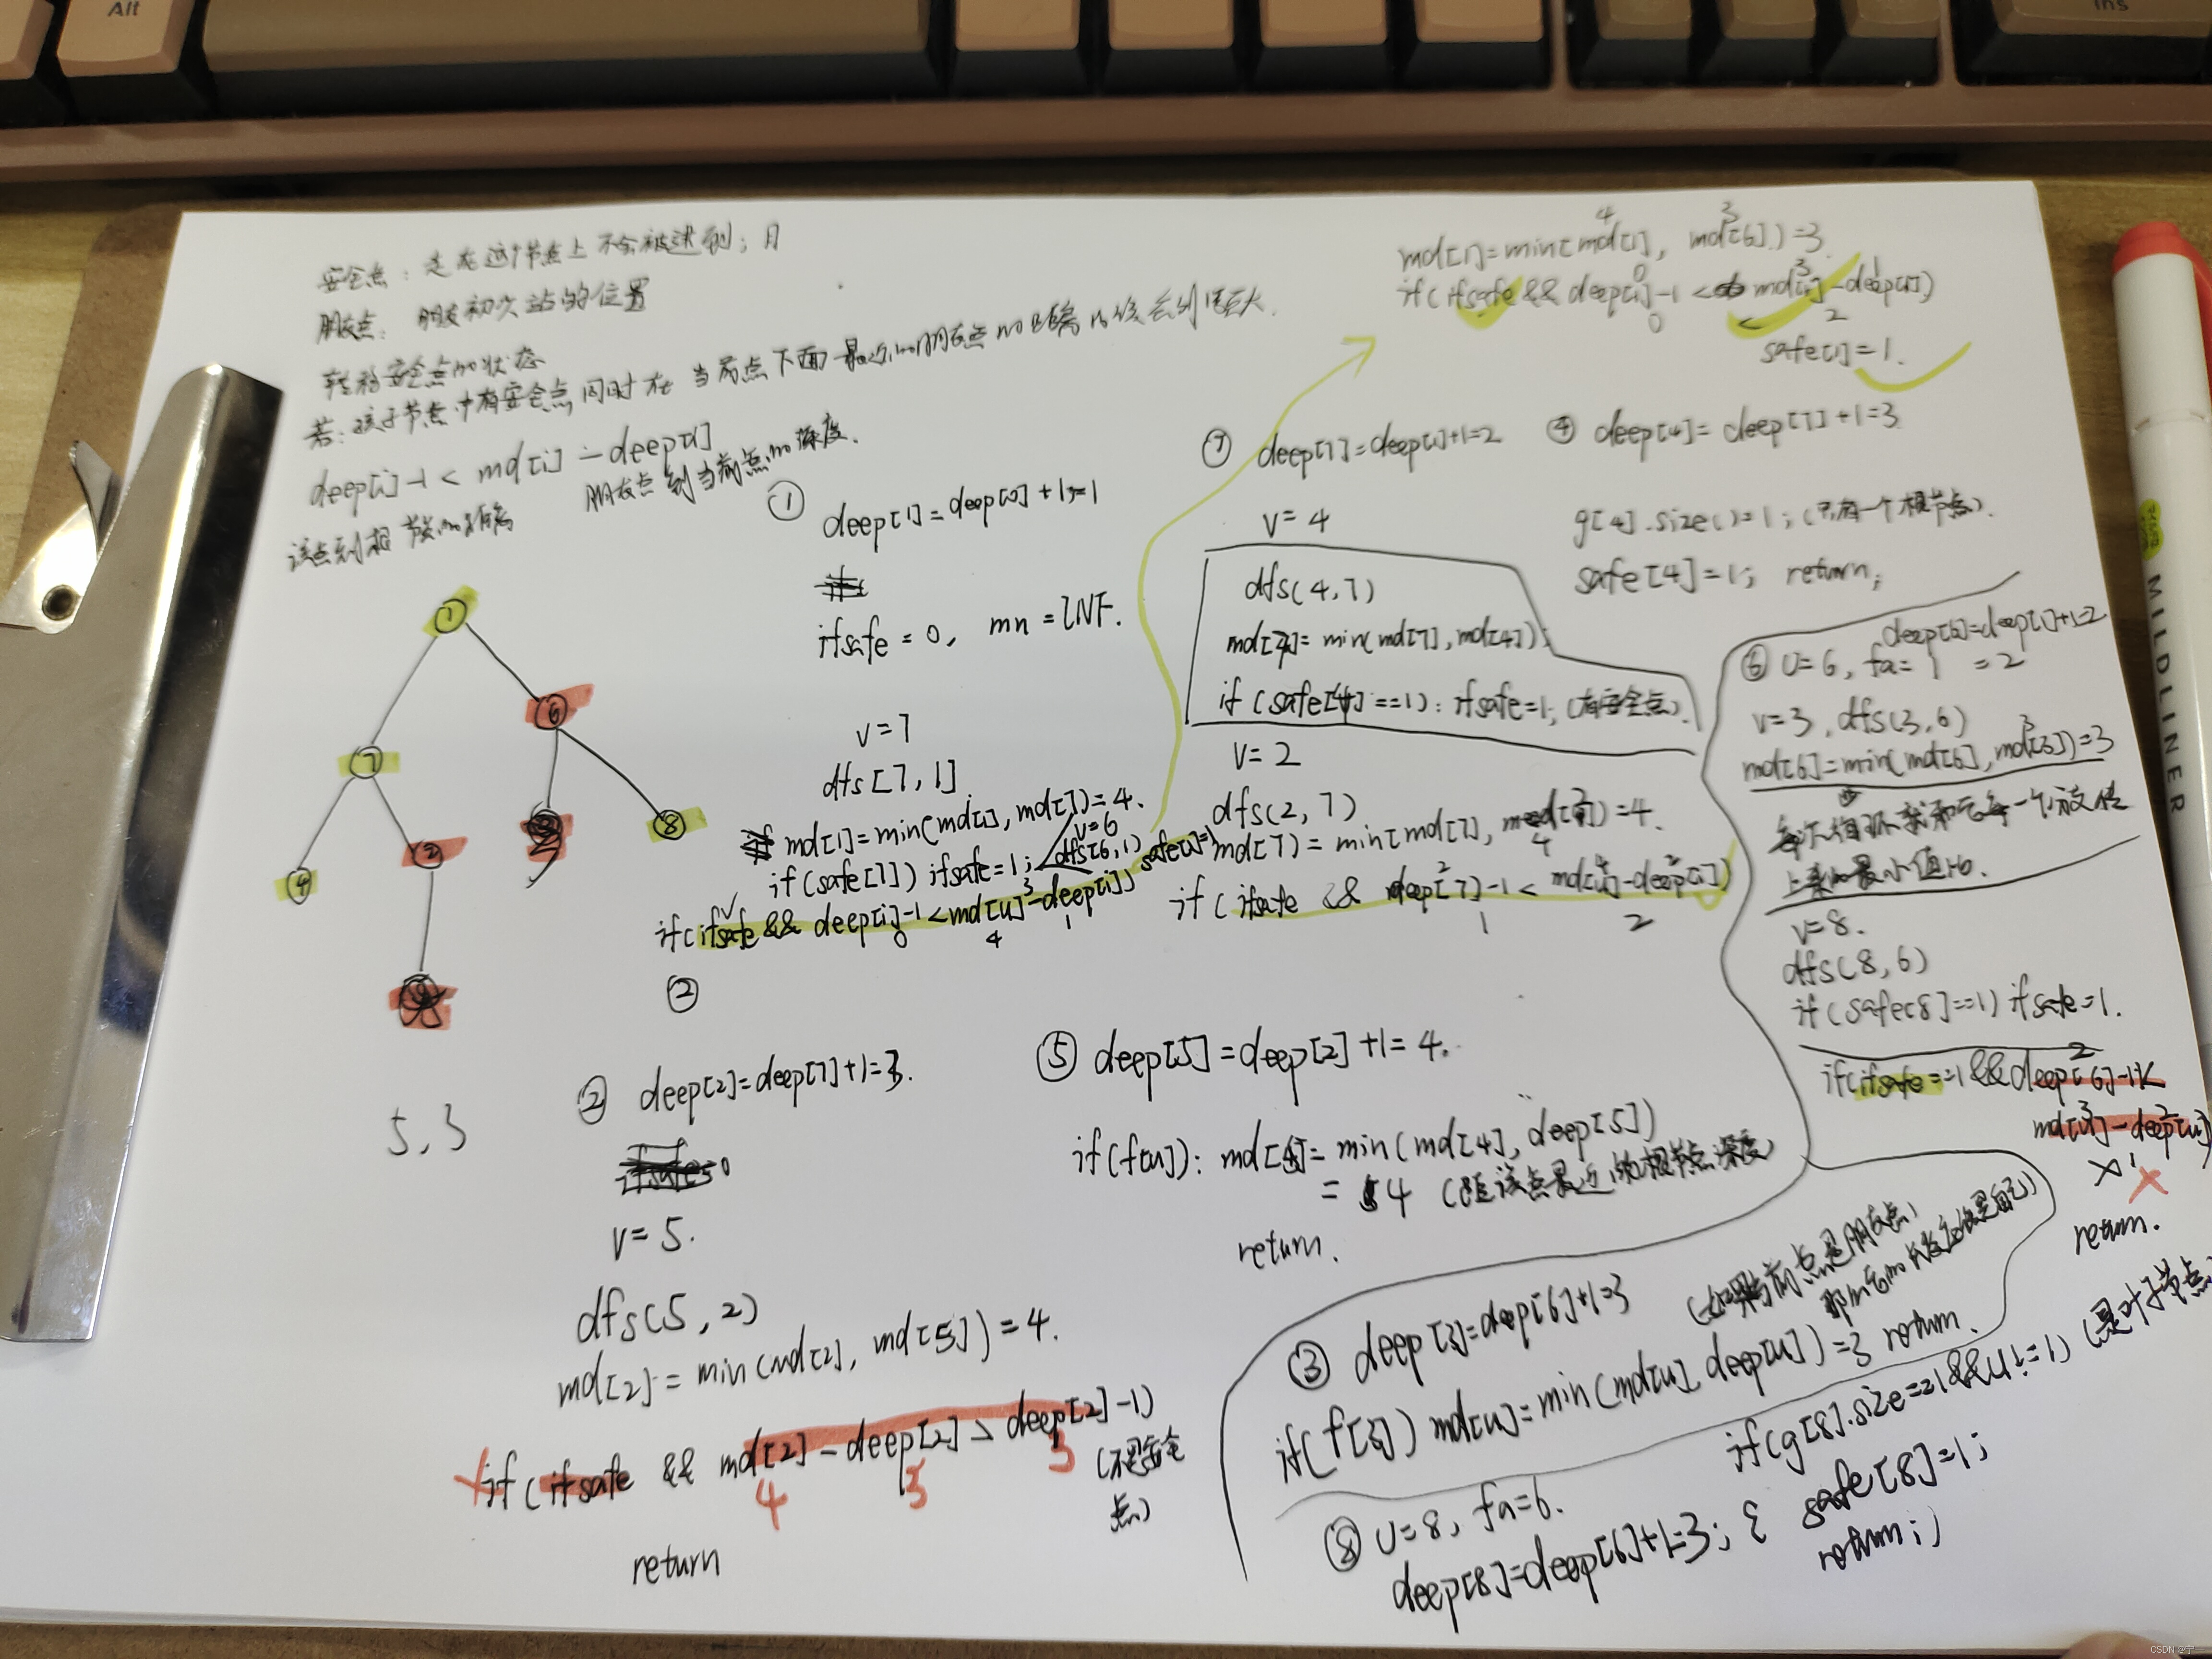 Alt
Ins
安全点：走在这个节点上不会被逮到；且
朋友点：朋友初次站的位置
转移安全点的状态
若：孩子节点中有安全点同时在当前点下面最近的朋友点的距离
deep[i]-1 < md[i] - deep[i]
该点到根节点的距离
朋友点到当前点的深度.
① deep[1]=deep[0]+1=1
ifsafe = 0, mn = INF.
v=7
dfs[7,1]
md[1]=min(md[1], md[7])=4.
if(safe[7]) ifsafe=1;
v=6
dfs(6,1)
if(ifsafe && deep[i]-1<md[u]-deep[i]) safe[1]=1
3
0 4 1
②
md[1]=min(md[1], md[6])=3
4 3
if(ifsafe && deep[1]-1 < md[1]-deep[1])
0 3 1
0 2
safe[1]=1.
⑦ deep[7]=deep[1]+1=2
v=4
dfs(4,7)
md[7]=min(md[7],md[4]);
if(safe[4]==1): ifsafe=1; (有安全点).
v=2
dfs(2,7)
md[7]=min(md[7], md[2])=4.
4
if(ifsafe && deep[7]-1 < md[u]-deep[i])
2 4 2
1 2
④ deep[4]=deep[7]+1=3
g[4].size()=1; (只有一个根节点).
safe[4]=1; return;
deep[6]=deep[1]+1=2
⑥ u=6, fa=1 =2
v=3, dfs(3,6)
md[6]=min(md[6], md[3])=3
3
v=8.
dfs(8,6)
if(safe[8]==1) ifsafe=1.
if(ifsafe==1&&deep[6]-1<
2
md[u]-deep[u])
3 2
1
return.
1
7
6
4
2
8
5, 3
② deep[2]=deep[7]+1=3.
v=5.
dfs(5,2)
md[2]=min(md[2], md[5])=4.
if(ifsafe && md[2]-deep[2]>deep[2]-1)
4 3 3
(不是安全
点)
return
⑤ deep[5]=deep[2]+1=4.
if(f[u]): md[4]=min(md[4], deep[5])
=4 (距该点最近的根节点深度)
return.
③ deep[3]=deep[6]+1=3
(如果当前点是朋友点,
if(f[3]) md[u]=min(md[u], deep[u])=3 return.
⑧ u=8, fa=6.
deep[8]=deep[6]+1=3;
if(g[8].size==1&&u!=1) (是叶子节点
{ safe[8]=1;
return;}
MILDLINER
CSDN @宁一